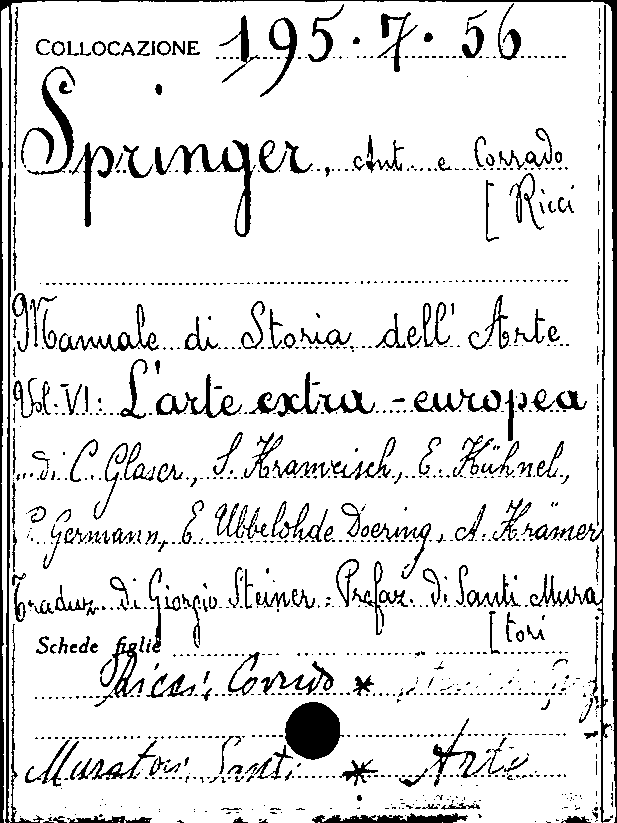 COLLOCAZIONE 195.7.56
Springer, Ant. e Corrado
[ Ricci
Manuale di Storia dell' Arte
Vol. VI: L'arte extra-europea
di C. Glaser, S. Kramreisch, E. Kühnel,
Germann, E. Ubbelohde Doering, A. Krämer
Traduz. di Giorgio Steiner. Prefaz. di Santi Mura
[tori
Schede figlie
Ricci, Corrado *
Muratori, Santi * Arte